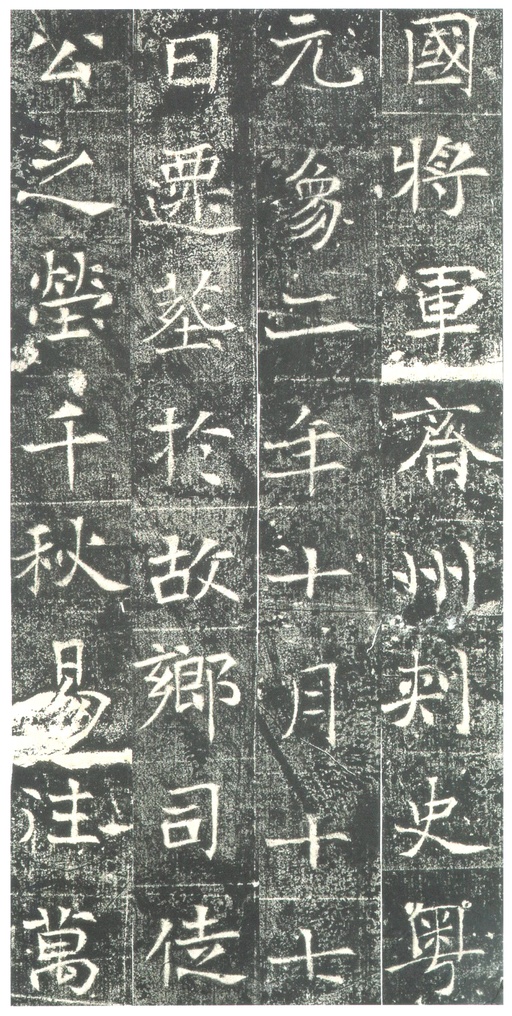 國將軍齊州刾史粵
元象二年十月十七
日遷葬於故鄉司徒
公之塋千秋易往萬